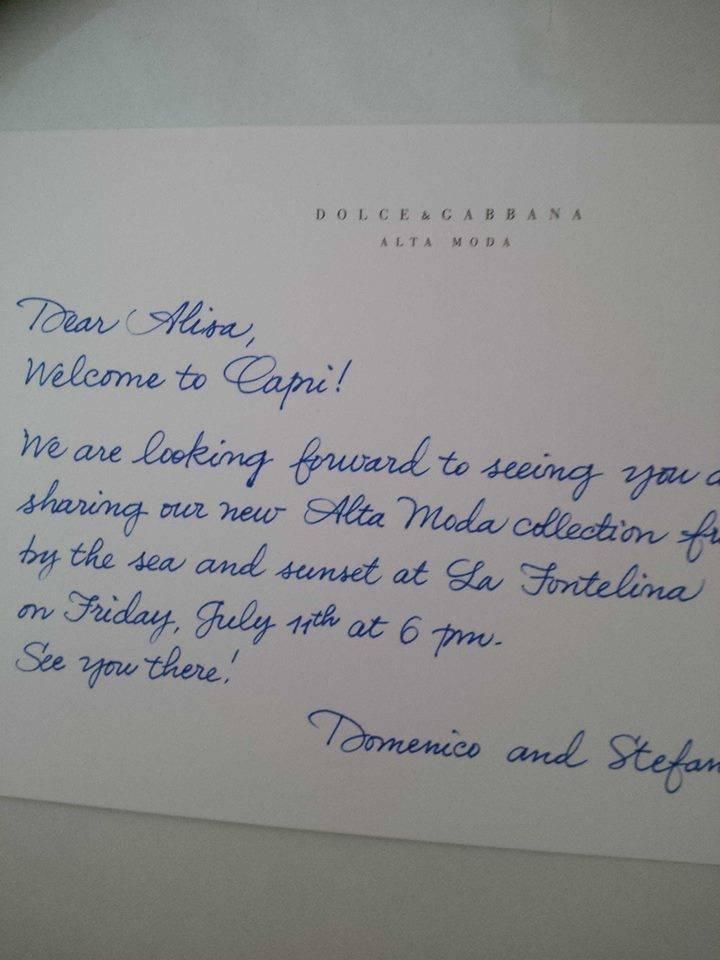 DOLCE & GABBANA
ALTA MODA
Dear Alisa,
Welcome to Capri!
We are looking forward to seeing you
sharing our new Alta Moda collection
by the sea and sunset at La Fontelina
on Friday, July 11th at 6 pm.
See you there!
Domenico and Stefan